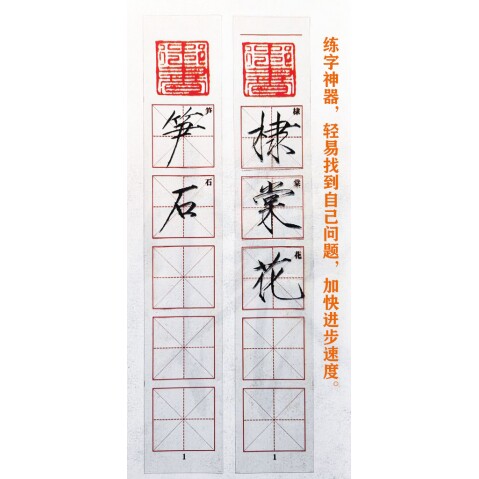 练字神器，轻易找到自己问题，加快进步速度。
棣
棣
棠
棠
花
花
1
笋
笋
石
石
1